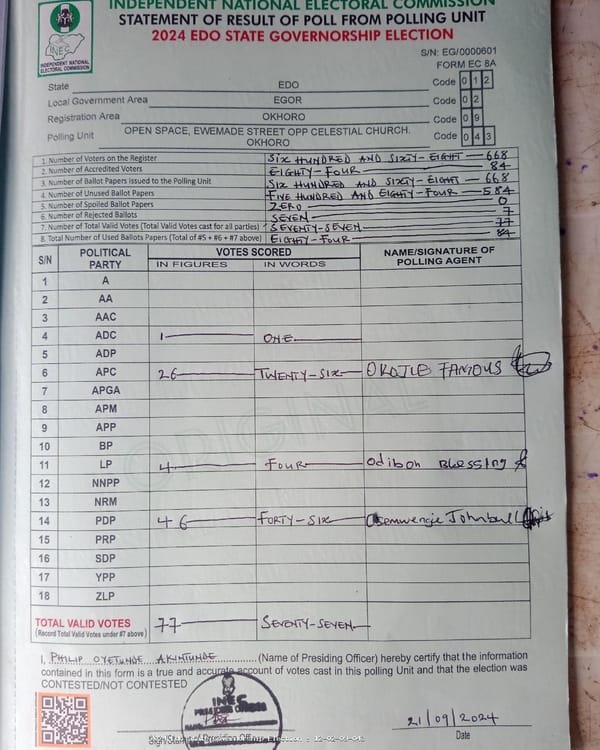 INDEPENDENT NATIONAL ELECTORAL COMMISSION
STATEMENT OF RESULT OF POLL FROM POLLING UNIT
2024 EDO STATE GOVERNORSHIP ELECTION
INEC
INDEPENDENT NATIONAL ELECTORAL COMMISSION
S/N: EG/0000601
FORM EC 8A
State EDO Code 0 1 2
Local Government Area EGOR Code 0 2
Registration Area OKHORO Code 0 9
Polling Unit OPEN SPACE, EWEMADE STREET OPP CELESTIAL CHURCH. OKHORO Code 0 4 3
1. Number of Voters on the Register SIX HUNDRED AND SIXTY-EIGHT 668
2. Number of Accredited Voters EIGHTY-FOUR 84
3. Number of Ballot Papers issued to the Polling Unit SIX HUNDRED AND SIXTY-EIGHT 668
4. Number of Unused Ballot Papers FIVE HUNDRED AND EIGHTY-FOUR 584
5. Number of Spoiled Ballot Papers ZERO 0
6. Number of Rejected Ballots SEVEN 7
7. Number of Total Valid Votes (Total Valid Votes cast for all parties) SEVENTY-SEVEN 77
8. Total Number of Used Ballots Papers (Total of #5 + #6 + #7 above) EIGHTY-FOUR 84
S/N POLITICAL PARTY VOTES SCORED NAME/SIGNATURE OF POLLING AGENT
IN FIGURES IN WORDS
1 A
2 AA
3 AAC
4 ADC 1 ONE
5 ADP
6 APC 26 TWENTY-SIX FAMOUS
7 APGA
8 APM
9 APP
10 BP
11 LP 4 FOUR Odiboh Blessing
12 NNPP
13 NRM
14 PDP 46 FORTY-SIX Johnbull
15 PRP
16 SDP
17 YPP
18 ZLP
ORIGINAL
TOTAL VALID VOTES 77 SEVENTY-SEVEN
(Record Total Valid Votes under #7 above)
I, PHILIP OYETUNDE AKINTUNDE (Name of Presiding Officer) hereby certify that the information
contained in this form is a true and accurate account of votes cast in this polling Unit and that the election was
CONTESTED/NOT CONTESTED
INEC
PRESIDING OFFICER
21/09/2024
Sign/Stamp of Presiding Officer
Date